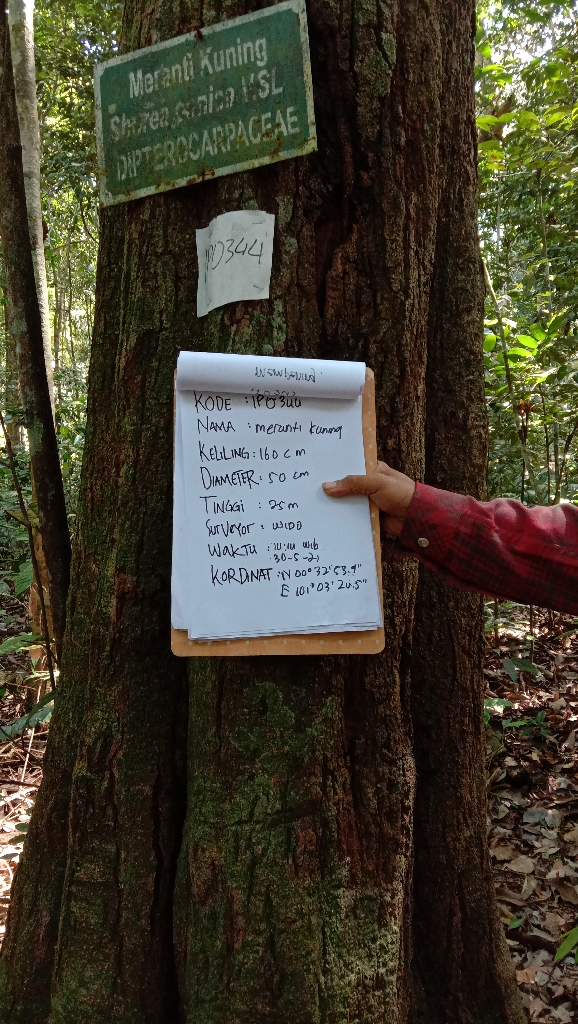 Meranti Kuning
Shorea conica VSL
DIPTEROCARPACEAE
IP0344
KODE : IP0344
NAMA : meranti kuning
KELILING : 160 cm
DIAMETER : 50 cm
TINGGI : 25m
Surveyor : WIDO
WAKTU : 10:44 wib
30-5-21
KORDINAT : N 00° 32' 53.9"
E 101° 03' 20.5"